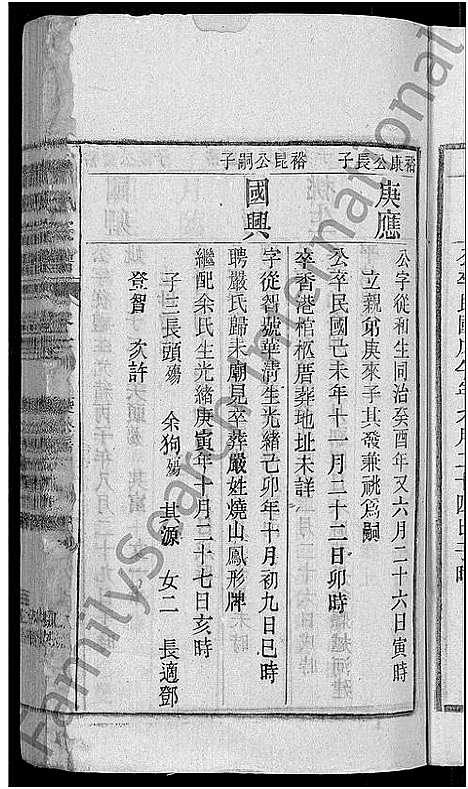 裕康公長子
庚應
公字從和生同治癸酉年又六月二十六日寅時
立親弟庚來子其發兼祧爲嗣
公卒民國己未年十一月二十二日卯時
卒香港棺柩厝葬地址未詳
裕昆公嗣子
國興
字從智號華清生光緒己卯年十月初九日巳時
聘嚴氏歸未廟見卒葬嚴姓燒山鳳形牌
繼配余氏生光緒庚寅年十月二十七日亥時
子三長頭殤 余狗殤 其源 女二 長適鄧
登智 次許
FamilySearch International